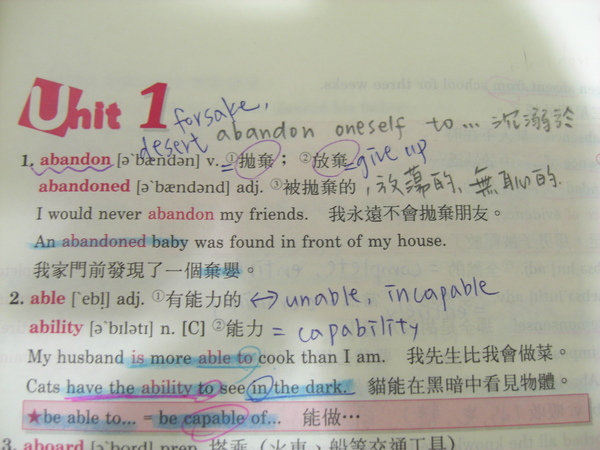 Unit 1
forsake,
desert abandon oneself to... 沉溺於
1. abandon [ə`bændən] v. =①拋棄； ②放棄=give up
abandoned [ə`bændənd] adj. ③被拋棄的，放蕩的, 無恥的.
I would never abandon my friends. 我永遠不會拋棄朋友。
An abandoned baby was found in front of my house.
我家門前發現了一個棄嬰。
2. able [`ebl̩] adj. ①有能力的 ↔ unable, incapable
ability [ə`bɪlətɪ] n. [C] ②能力 = capability
My husband is more able to cook than I am. 我先生比我會做菜。
Cats have the ability to see in the dark. 貓能在黑暗中看見物體。
★be able to... = be capable of... 能做…
3. aboard [ə`bord] prep. 搭乘（火車、船等交通工具）